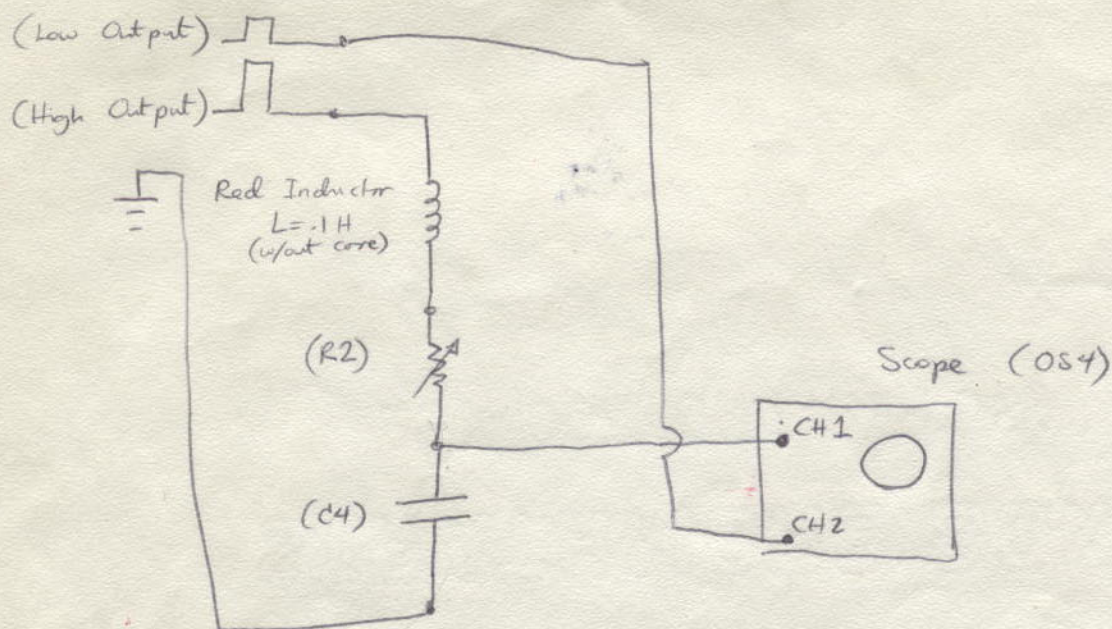 (Low Output)
(High Output)
Red Inductor
L=.1 H
(w/out core)
(R2)
Scope (OS4)
CH1
(C4)
CH2